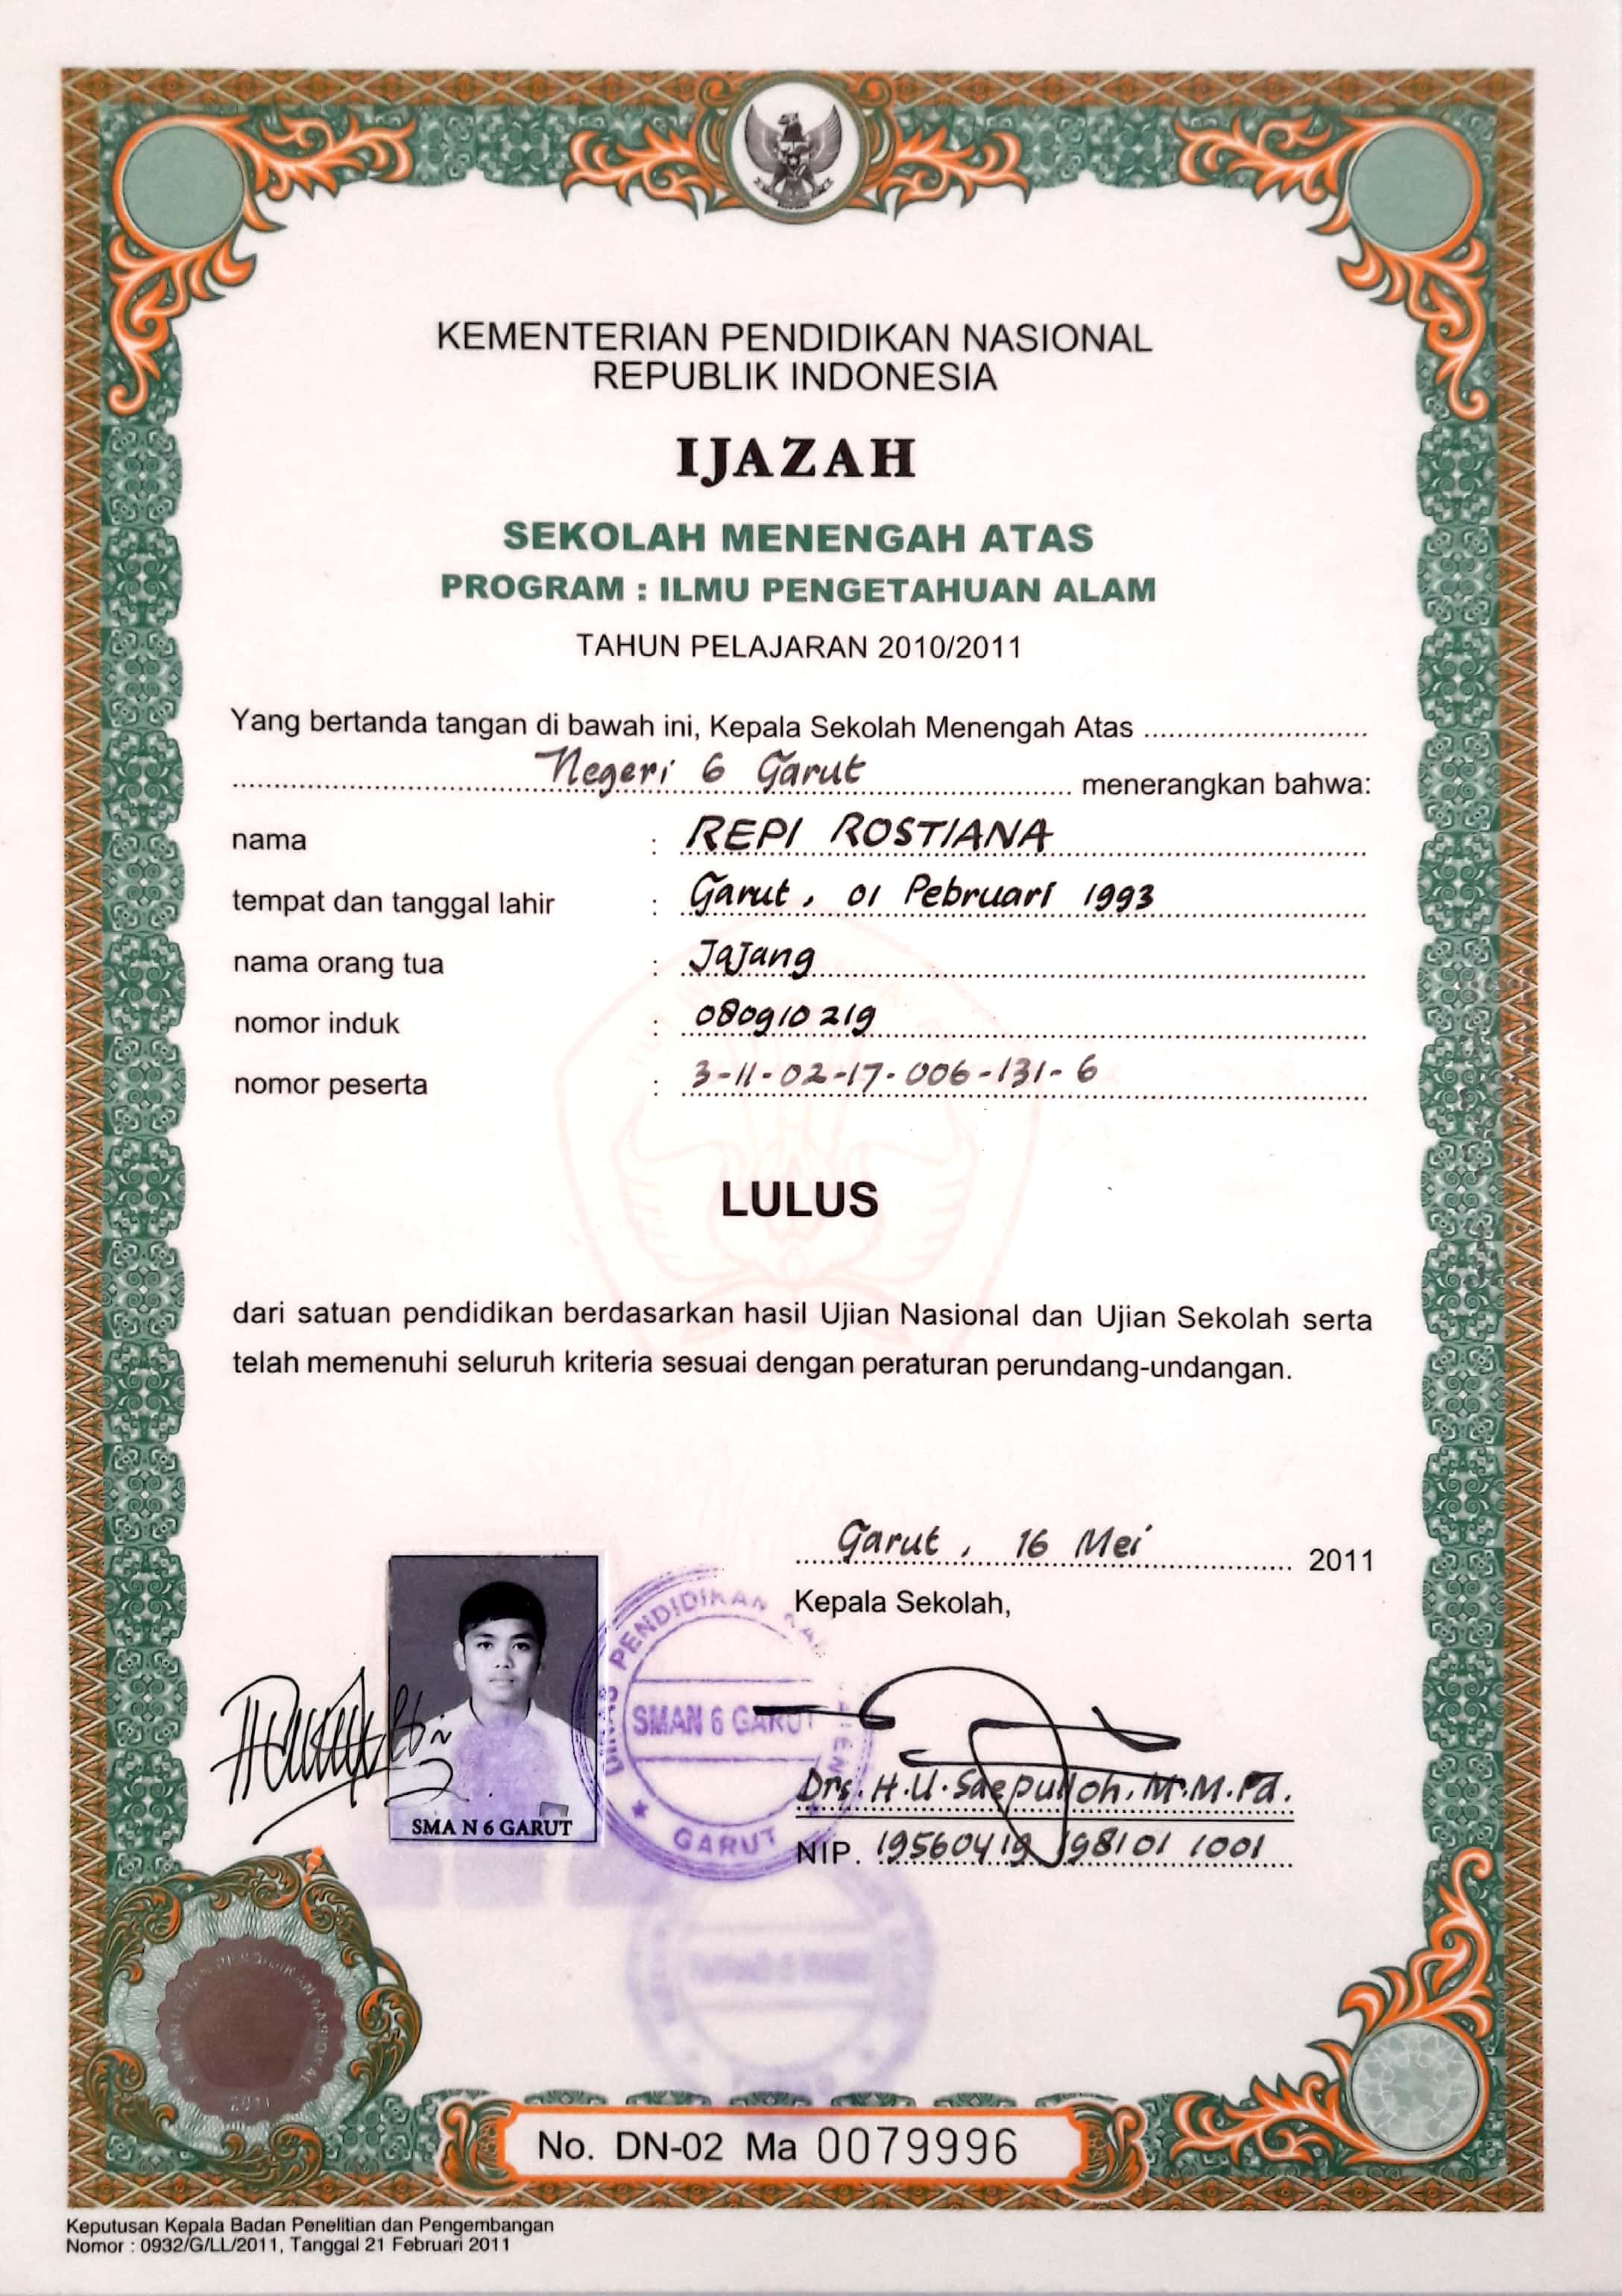 KEMENTERIAN PENDIDIKAN NASIONAL
REPUBLIK INDONESIA
IJAZAH
SEKOLAH MENENGAH ATAS
PROGRAM : ILMU PENGETAHUAN ALAM
TAHUN PELAJARAN 2010/2011
Yang bertanda tangan di bawah ini, Kepala Sekolah Menengah Atas
Negeri 6 Garut menerangkan bahwa:
nama : REPI ROSTIANA
tempat dan tanggal lahir : Garut, 01 Pebruari 1993
nama orang tua : Jajang
nomor induk : 080910219
nomor peserta : 3-11-02-17-006-131-6
LULUS
dari satuan pendidikan berdasarkan hasil Ujian Nasional dan Ujian Sekolah serta
telah memenuhi seluruh kriteria sesuai dengan peraturan perundang-undangan.
Garut, 16 Mei 2011
Kepala Sekolah,
DINAS PENDIDIKAN
SMAN 6 GARUT
GARUT
Drs. H.U. Saepulloh, M.M.Pd.
NIP. 19560419 198101 1001
SMA N 6 GARUT
KEMENTERIAN PENDIDIKAN NASIONAL
2011
No. DN-02 Ma 0079996
Keputusan Kepala Badan Penelitian dan Pengembangan
Nomor : 0932/G/LL/2011, Tanggal 21 Februari 2011